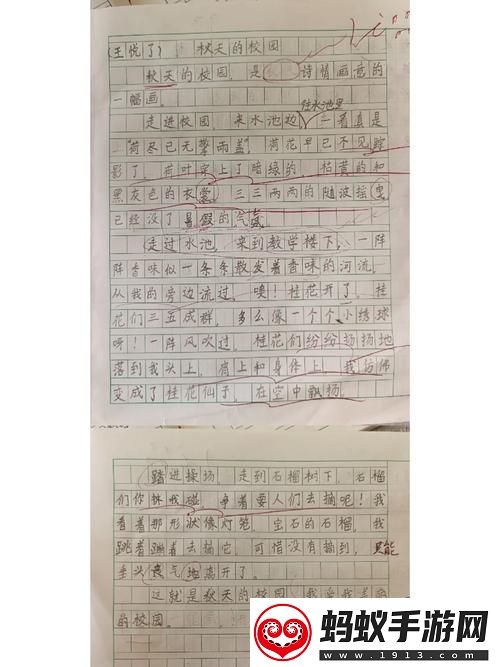 (王悦了) 秋天的校园
秋天的校园，是诗情画意的
一幅画。
往水池里
走进校园，来水池边，一看真是
“荷尽已无擎雨盖”，荷花早已不见踪
影了，荷叶穿上了暗绿的，枯黄的和
黑灰色的衣裳，三三两两的随波摇曳，
已经没了暑假的气氛。
走过水池，来到教学楼下，一阵
阵香味似一条条散发着香味的河流，
从我的旁边流过。噢！桂花开了，桂
花们三五成群，多么像一个个小绣球
呀！一阵风吹过，桂花们纷纷扬扬地
落到我头上，肩上和身体上，我仿佛
变成了桂花仙子，在空中飘扬。
踏进操场，走到石榴树下，石榴
们你挨我碰，争着要人们去摘呢！我
看着那形状像灯笼，宝石的石榴，我
跳着蹦着去摘它，可惜没有摘到，只能
垂头丧气地离开了。
这就是秋天的校园，我爱我
的校园。
蚂蚁手游网
www.1913.com